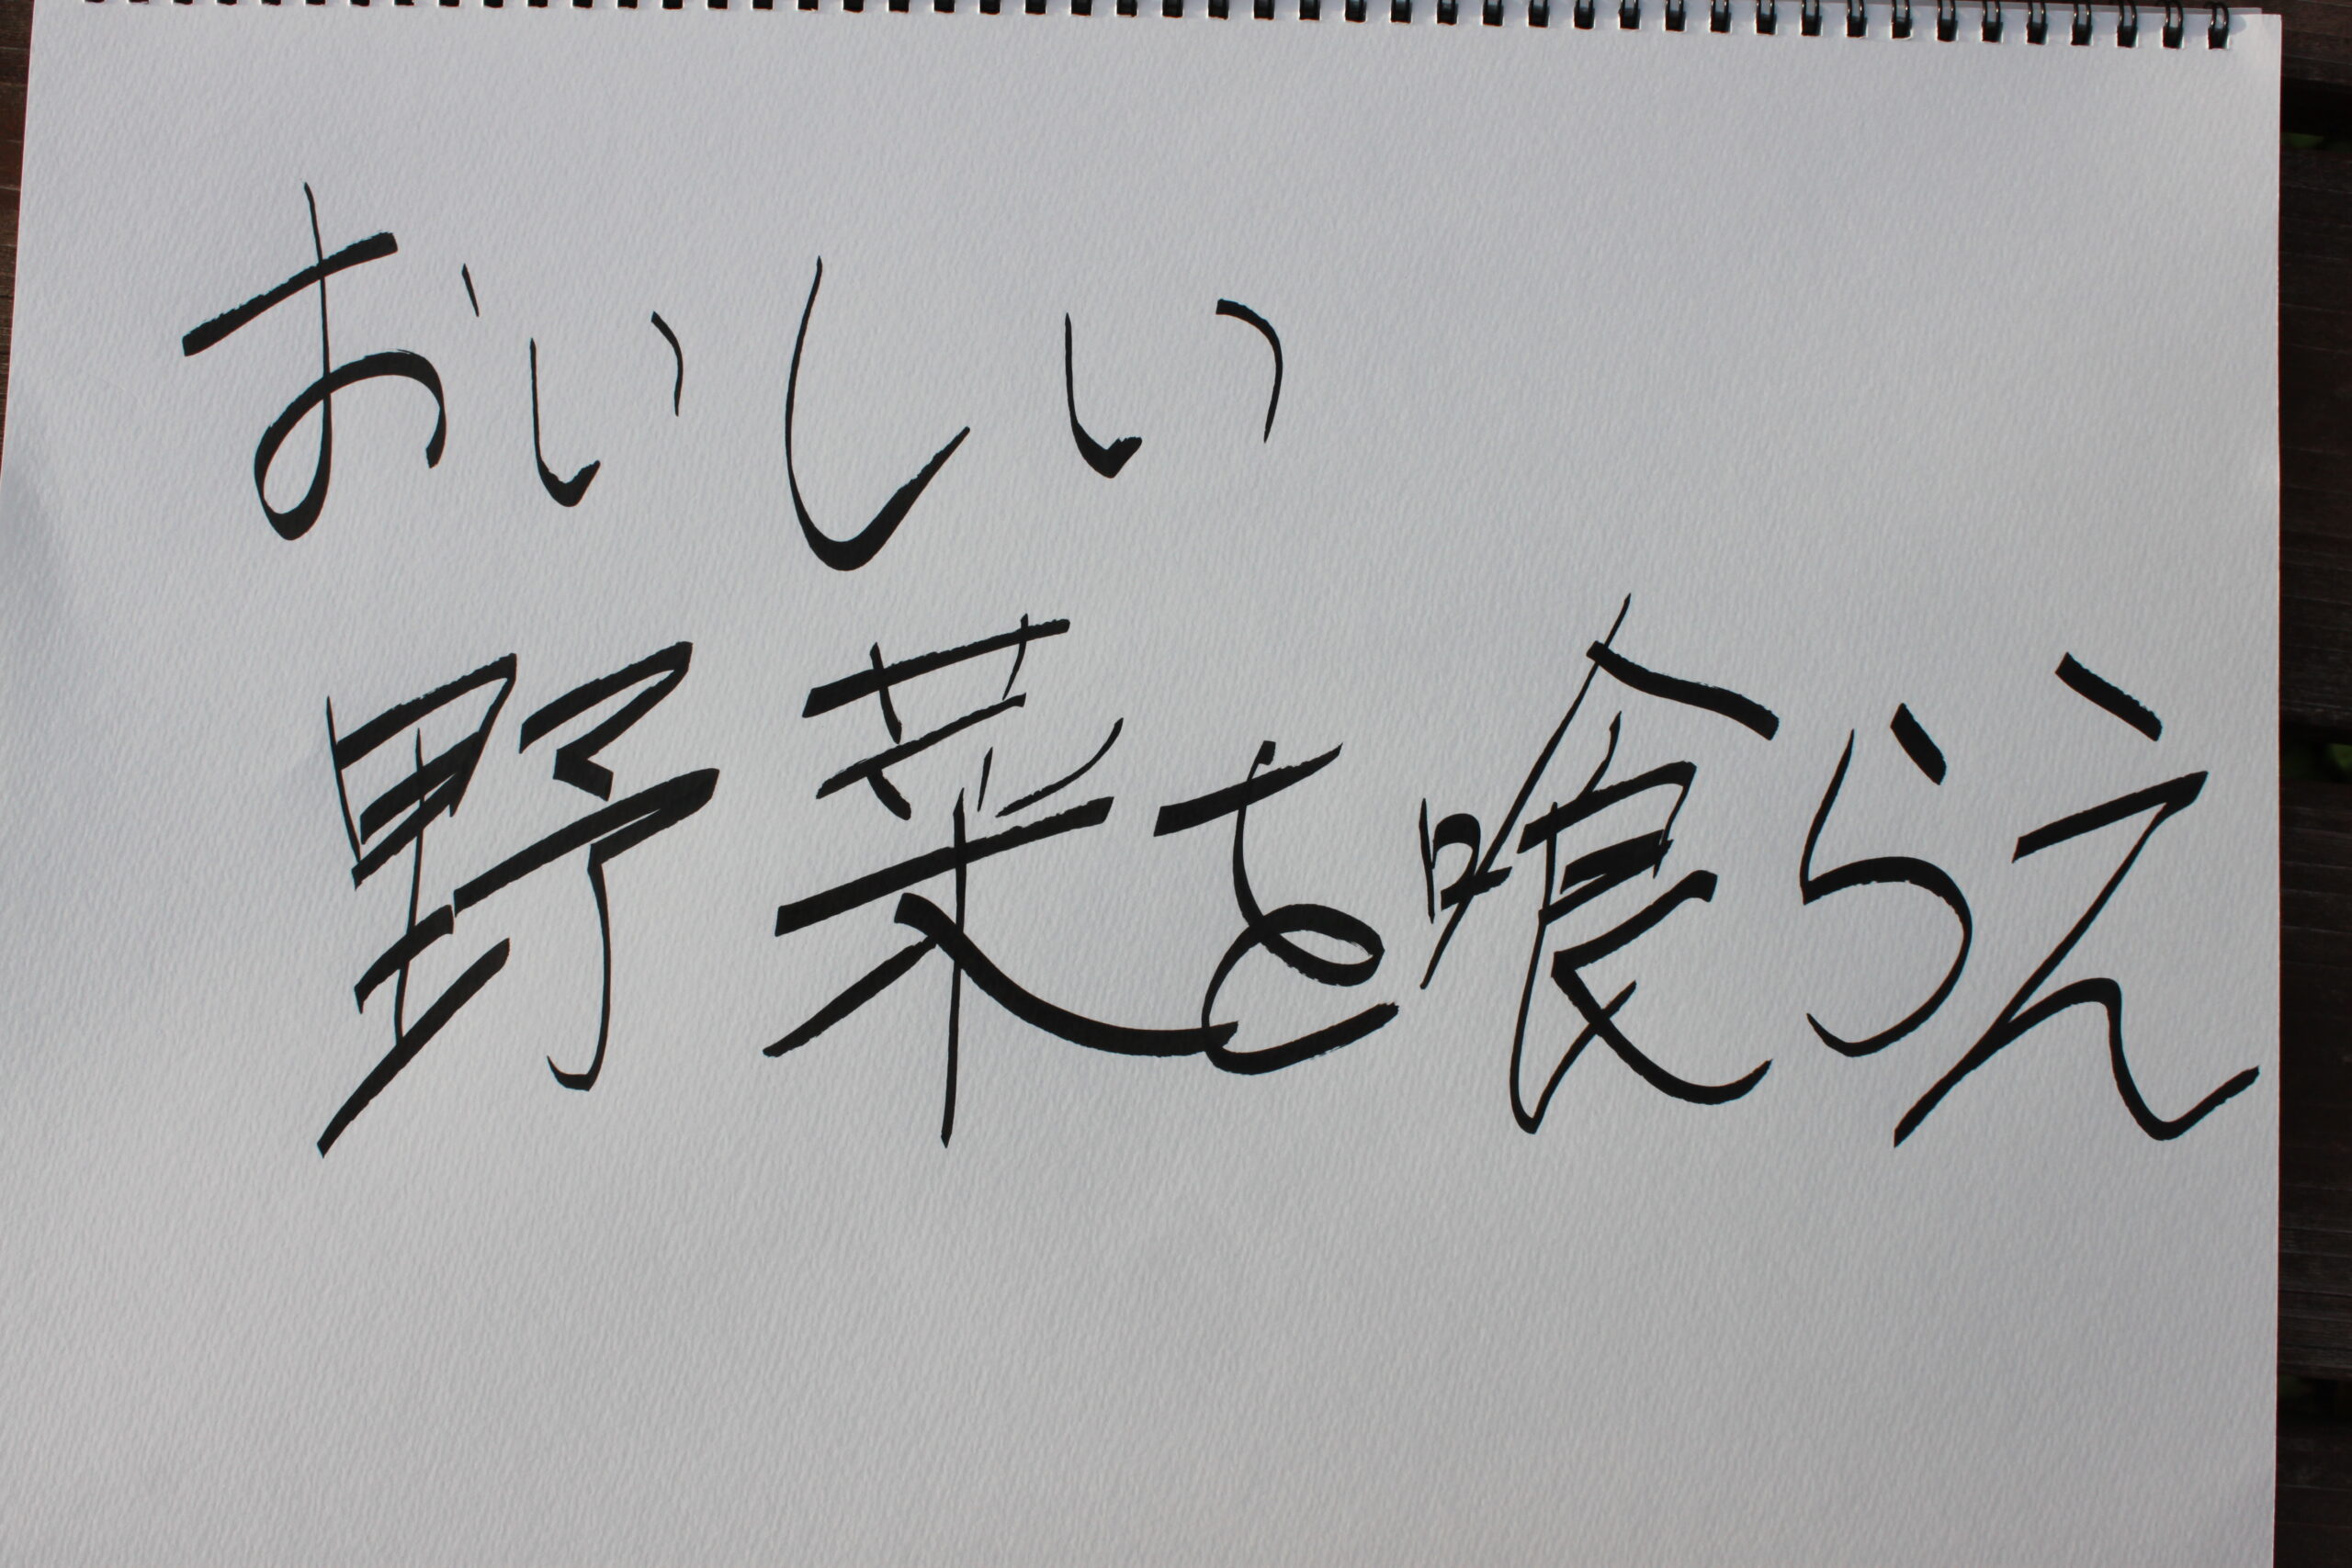 おいしい
野菜を喰らえ